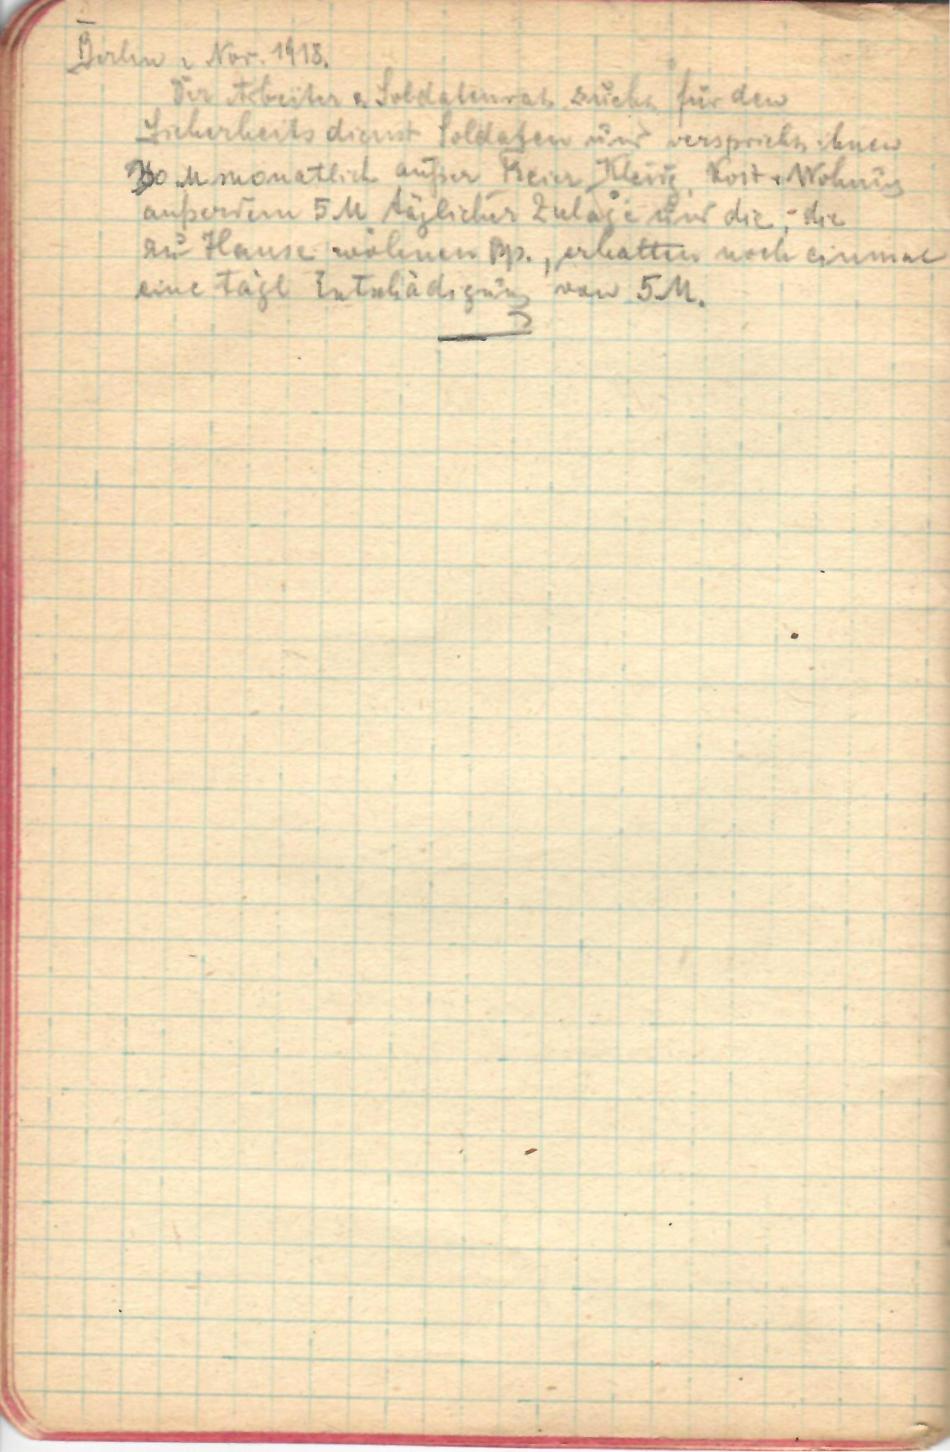 Berlin, Nov. 1918.
Der Arbeiter & Soldatenrat sucht für den
Sicherheitsdienst Soldaten und verspricht ihnen
30 M monatlich außer freier Kleidg, Kost u. Wohnung
außerdem 5 M täglicher Zulage und die, die
zu Hause wohnen pp., erhalten noch einmal
eine tägl Entschädigung von 5 M.